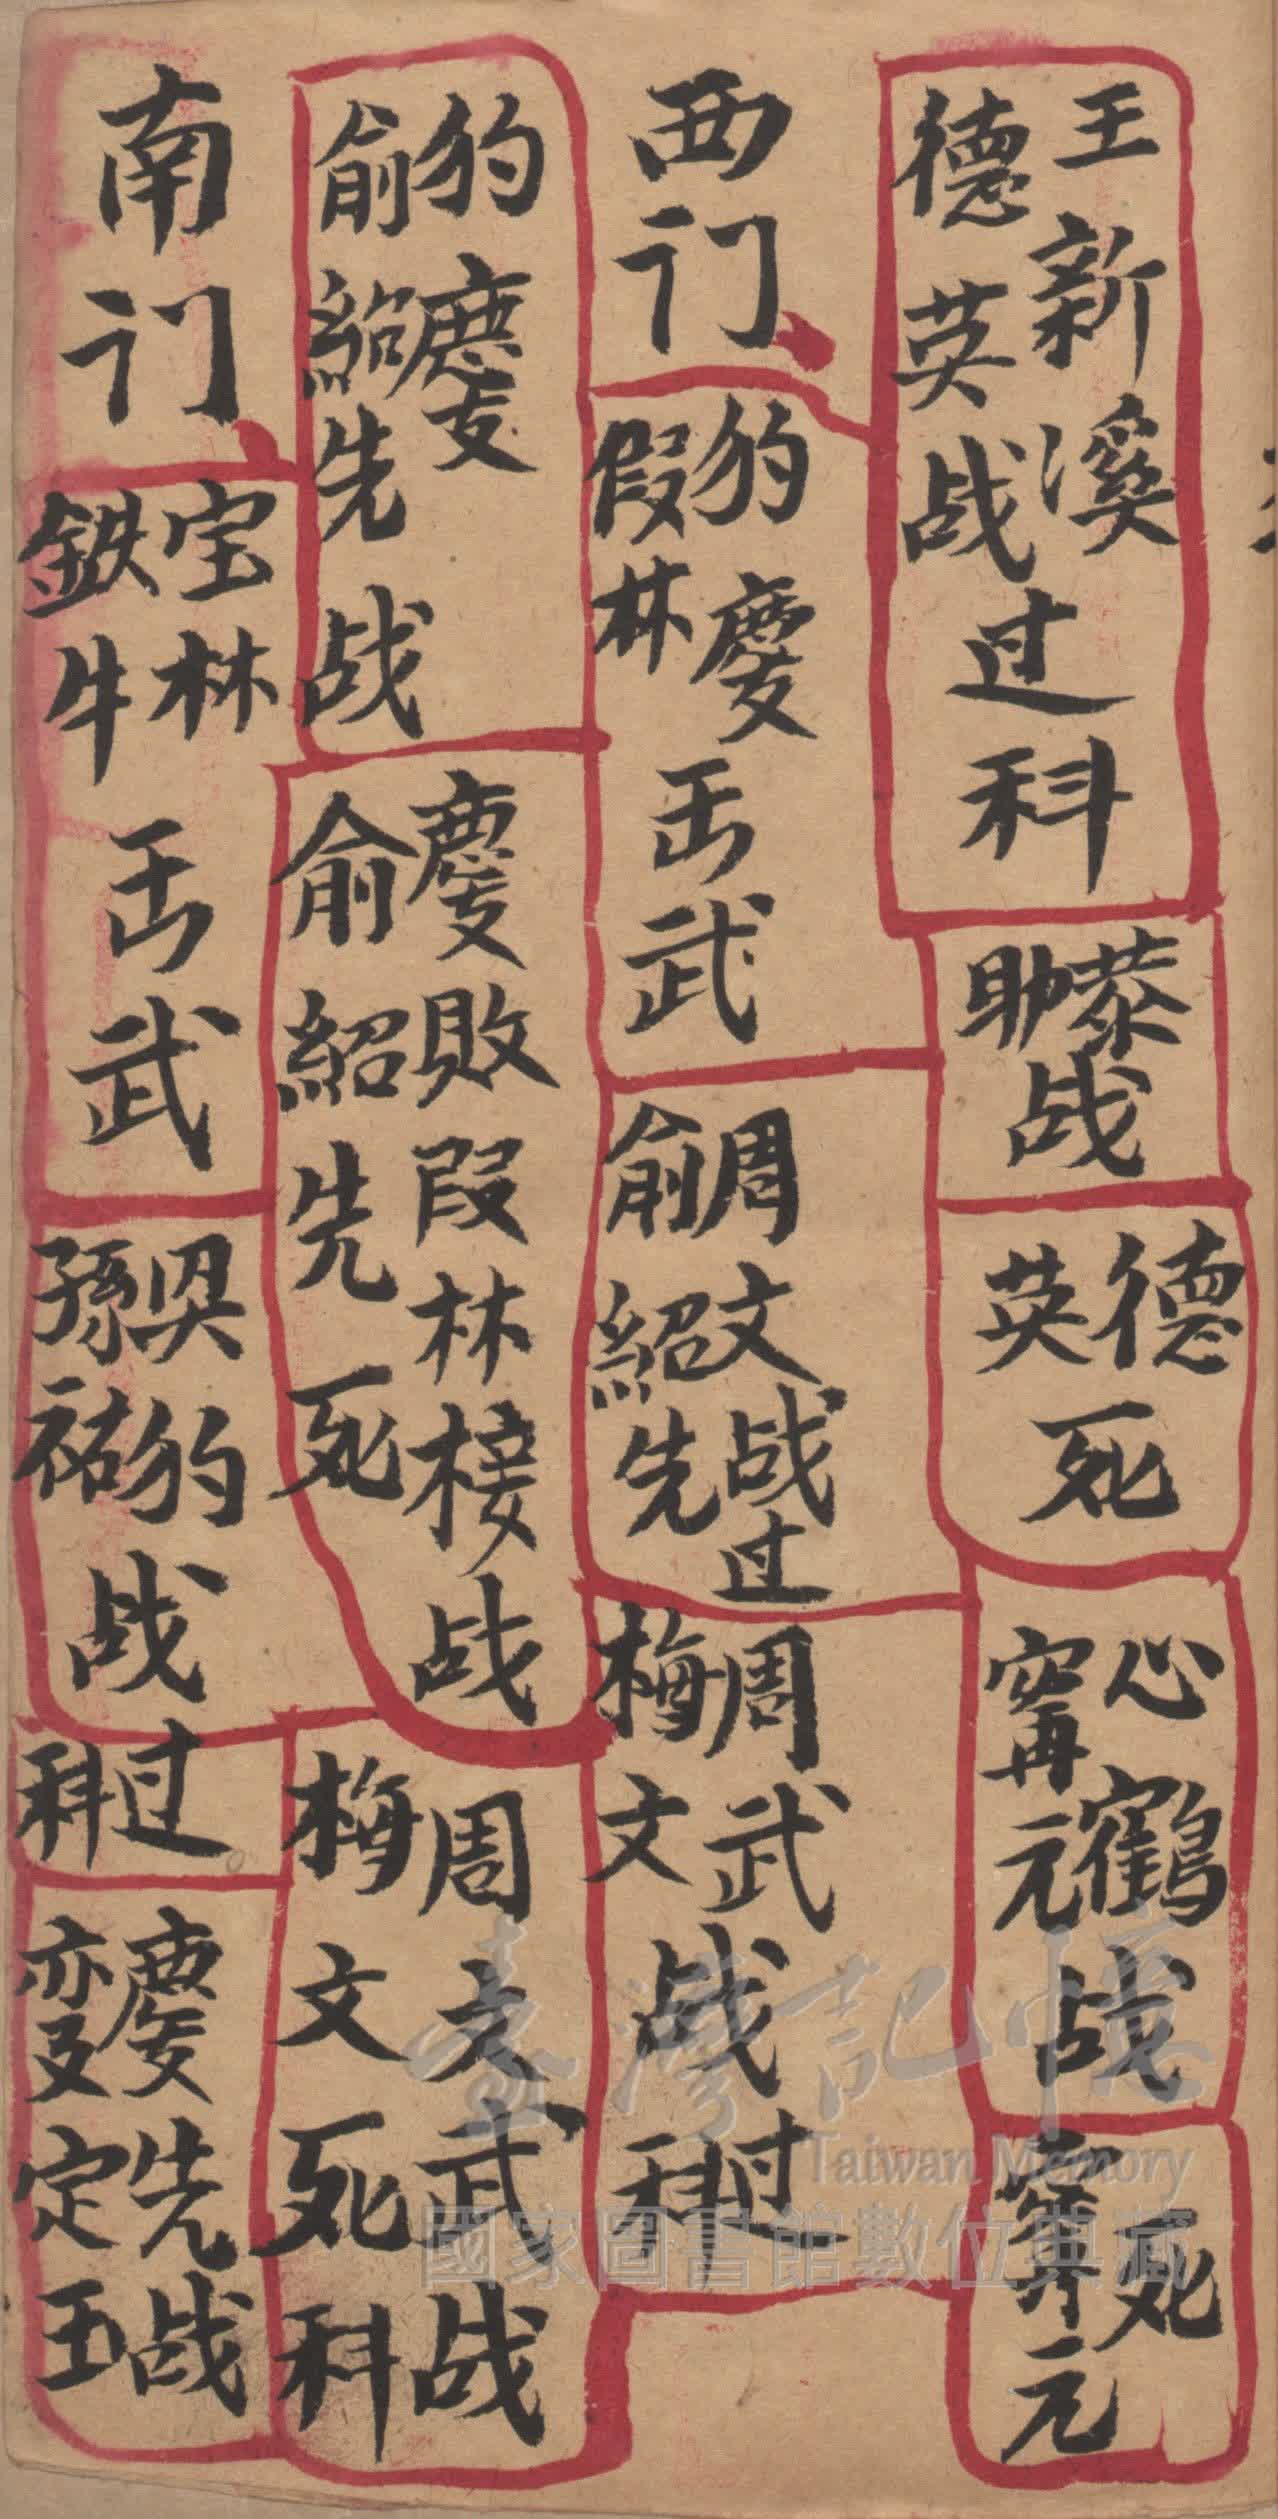 王新溪
德英战过科
恭助战
德英死
心鶴
寗元战
死
寗元
西门
豹慶
假林
武
周文战过
俞紹先
周武
梅文
战过科
豹慶
俞紹先战
慶敗叚林接战
俞紹先死
周文武战
梅文死科
南门
宝林
鉄牛
武
吳豹
孫祐
战
过科
慶先战
定玉
臺灣記憶
Taiwan Memory
國家圖書館數位典藏